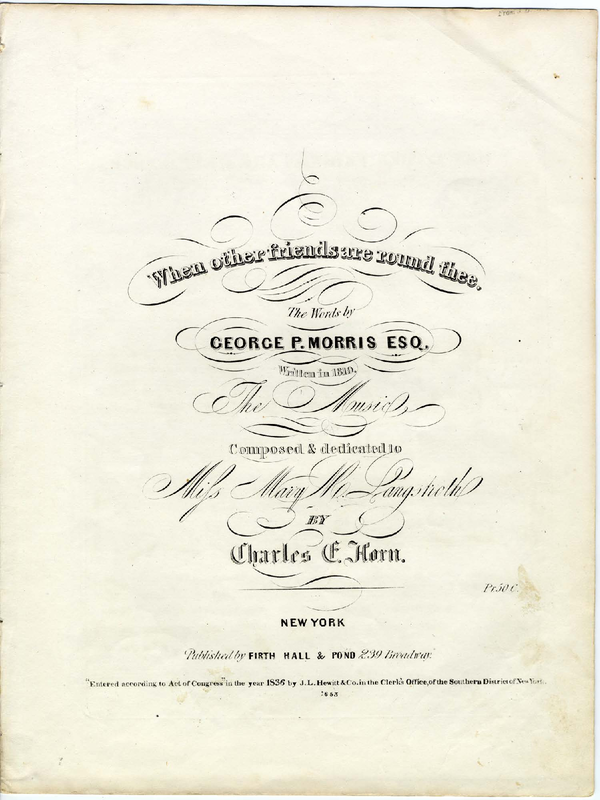 When other friends are round thee.
The Words by
GEORGE P. MORRIS ESQ.
Written in 1810,
The Music
Composed & dedicated to
Miss Mary W. Langstroth
BY
Charles E. Horn.
Pr. 50 C.
NEW YORK
Published by FIRTH HALL & POND 239 Broadway.
"Entered according to Act of Congress" in the year 1836 by J.L. Hewitt & Co. in the Clerk's Office, of the Southern District of New York.